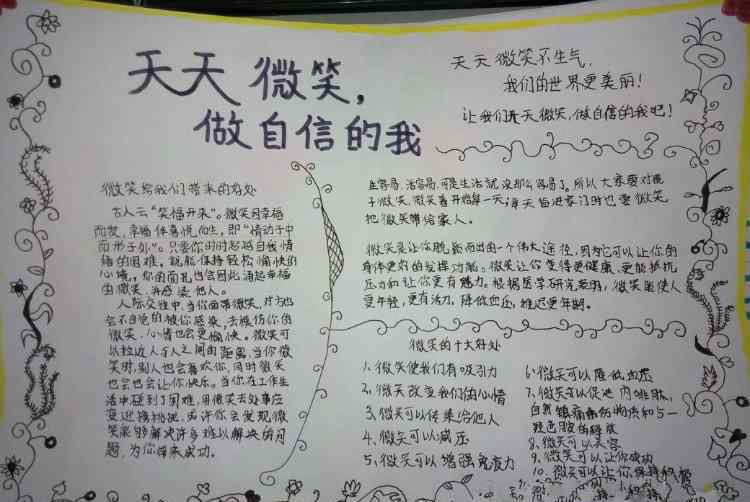 天天微笑，
做自信的我
天天微笑不生气，
我们的世界更美丽！
让我们天天微笑，做自信的我吧！
微笑给我们带来的好处
古人云“笑福开来”。微笑因幸福
而发，幸福伴喜悦而生，即“情动于中
而形于外”。只要你时时忽越自我情
绪的困难，就能保持轻松愉快的
心境，你的面孔也会因此涌起幸福
的微笑，并感染他人。
人际交往中，当你面带微笑，对方也
会不自觉的被你感染，去模仿你的
微笑，心情也会更愉快。微笑可
以拉近人与人之间的距离，当你微
笑时，别人也会喜欢你，同时微笑
也会也会让你快乐。当你在工作生
活中碰到了困难，用微笑去处事应
变迎接挑战，或许你会发现微
笑能够解决许多难以解决的问
题，为你带来成功。
容易，活容易，可是生活就没那么容易了。所以大家要对镜
子微笑，微笑着开始第一天；每天当进家门时也要微笑，
把微笑带给家人。
微笑是让你脱颖而出的一个伟大途径，因为它可以让你的
身体更好的发挥功能。微笑让你变得更健康，更能够抗
压力和让你更有魅力。根据医学研究表明，微笑能使人
更年轻，更有活力，降低血压，推迟更年期。
微笑的十大好处
1、微笑使我们有吸引力
2、微笑改变我们的心情
3、微笑可以传染给他人
4、微笑可以减压
5、微笑可以增强免疫力
6、微笑可以降低血压
7、微笑可以促进内啡肽，
自然镇痛
8、微笑可以美容
9、微笑可以让你成功
10、微笑可以让你保持积极